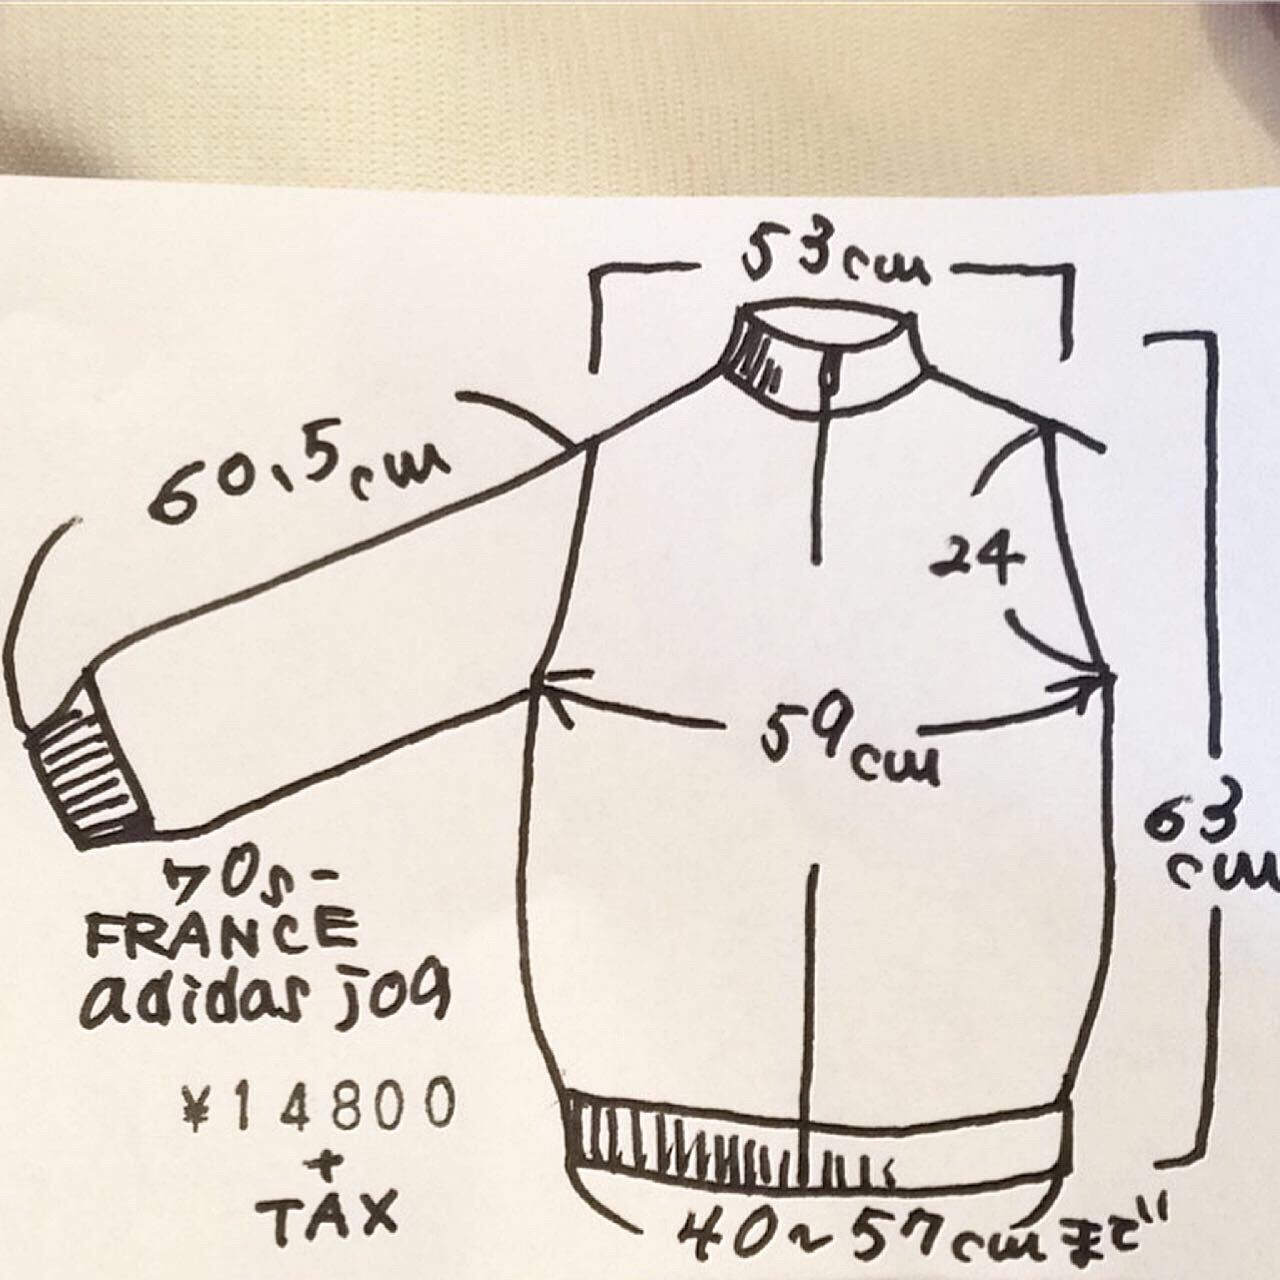 53cm
60.5cm
24
59cm
63
cm
70s-
FRANCE
adidas jog
¥14800
+
TAX
40~57cmまで